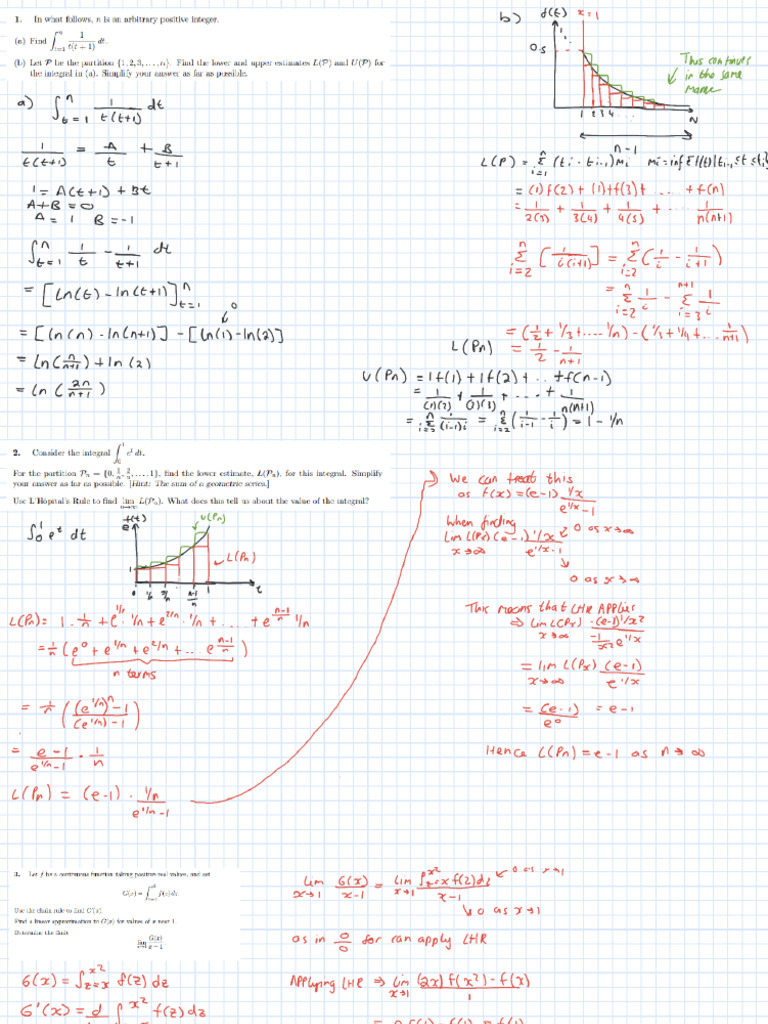 1. In what follows, n is an arbitrary positive integer.
(a) Find ∫_{t=1}^{n} 1/(t(t+1)) dt.
(b) Let P be the partition {1, 2, 3, . . . , n}. Find the lower and upper estimates L(P) and U(P) for
the integral in (a). Simplify your answer as far as possible.
a) ∫_{t=1}^{n} 1/(t(t+1)) dt
1/(t(t+1)) = A/t + B/(t+1)
1 = A(t+1) + Bt
A+B = 0
A = 1 B = -1
∫_{t=1}^{n} 1/t - 1/(t+1) dt
= [ln(t) - ln(t+1)]_{t=1}^{n}
0
= [ln(n) - ln(n+1)] - [ln(1) - ln(2)]
= ln(n/(n+1)) + ln(2)
= ln(2n/(n+1))
b) f(t) x=1
0.5
This continues
in the same
1 2 3 4 ... N
L(P) = Σ_{i=1}^{n-1} (ti - ti-1) mi mi = inf{f(t)|ti-1 ≤ t ≤ ti}
= (1)f(2) + (1)f(3) + ... + f(n)
= 1/2(3) + 1/3(4) + 1/4(5) + ... 1/n(n+1)
Σ_{i=2}^{n} [1/i(i+1)] = Σ_{i=2}^{n} (1/i - 1/(i+1))
= Σ_{i=2}^{n} 1/i - Σ_{i=3}^{n+1} 1/i
= (1/2 + 1/3 + .... 1/n) - (1/3 + 1/4 + ... 1/(n+1))
L(Pn) = 1/2 - 1/(n+1)
U(Pn) = 1f(1) + 1f(2) + ... + f(n-1)
= 1/(1)(2) + 1/(2)(3) + ... + 1/n(n+1)
= Σ_{i=2}^{n} 1/(i-1)i = Σ_{i=2}^{n} (1/(i-1) - 1/i) = 1 - 1/n
2. Consider the integral ∫_{0}^{1} e^t dt.
For the partition P_n = {0, 1/n, 2/n, . . . , 1}, find the lower estimate, L(P_n), for this integral. Simplify
your answer as far as possible. [Hint: The sum of a geometric series.]
Use L'Hôpital's Rule to find lim_{n→∞} L(P_n). What does this tell us about the value of the integral?
∫_0^1 e^t dt
f(t) U(Pn)
e
L(Pn)
1
0 1/n 2/n .. (n-1)/n 1 t
L(Pn) = 1 · 1/n + e^{1/n} · 1/n + e^{2/n} · 1/n + ... + e^{(n-1)/n} 1/n
= 1/n (e^0 + e^{1/n} + e^{2/n} + ... e^{(n-1)/n})
n terms
= 1/n (((e^{1/n})^n - 1)/((e^{1/n}) - 1))
= (e-1)/(e^{1/n} - 1) · 1/n
L(Pn) = (e-1) · (1/n)/(e^{1/n} - 1)
We can treat this
as f(x) = (e-1) (1/x)/(e^{1/x} - 1)
When finding
lim_{x→∞} L(Px) (e-1) (1/x)/(e^{1/x} - 1) 0 as x→∞
0 as x→∞
This means that LHR Applies
⇒ lim_{x→∞} L(Px) (-(e-1)1/x²)/(-1/x² e^{1/x})
= lim_{x→∞} L(Px) (e-1)/e^{1/x}
= (e-1)/e^0 = e-1
Hence L(Pn) = e-1 as n→∞
3. Let f be a continuous function taking positive real values, and set
Use the chain rule to find G'(x).
Find a linear approximation to G(x) for values of x near 1.
Determine the limit
lim_{x→1} G(x)/(x-1)
G(x) = ∫_{z=x}^{x²} f(z) dz
G'(x) = d ∫^{x²} f(z) dz
lim_{x→1} G(x)/(x-1) = lim_{x→1} (∫_{z=x}^{x²} f(z) dz)/(x-1) 0 as x→1
0 as x→1
as in 0/0 for can apply LHR
Applying LHR ⇒ lim_{x→1} ((2x) f(x²) - f(x))/1